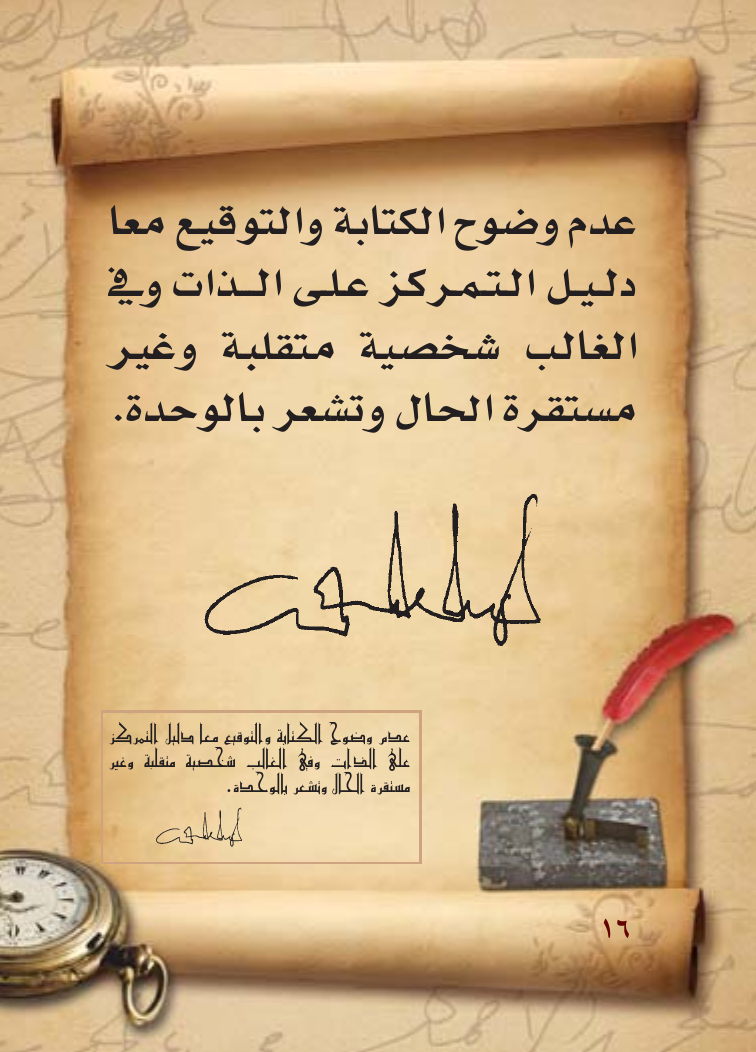 عدم وضوح الكتابة والتوقيع معا
دليل التمركز على الذات وفي
الغالب شخصية متقلبة وغير
مستقرة الحال وتشعر بالوحدة.
عدم وضوح الكتابة والتوقيع معا دليل التمركز
على الذات وفي الغالب شخصية متقلبة وغير
مستقرة الحال وتشعر بالوحدة.
١٦